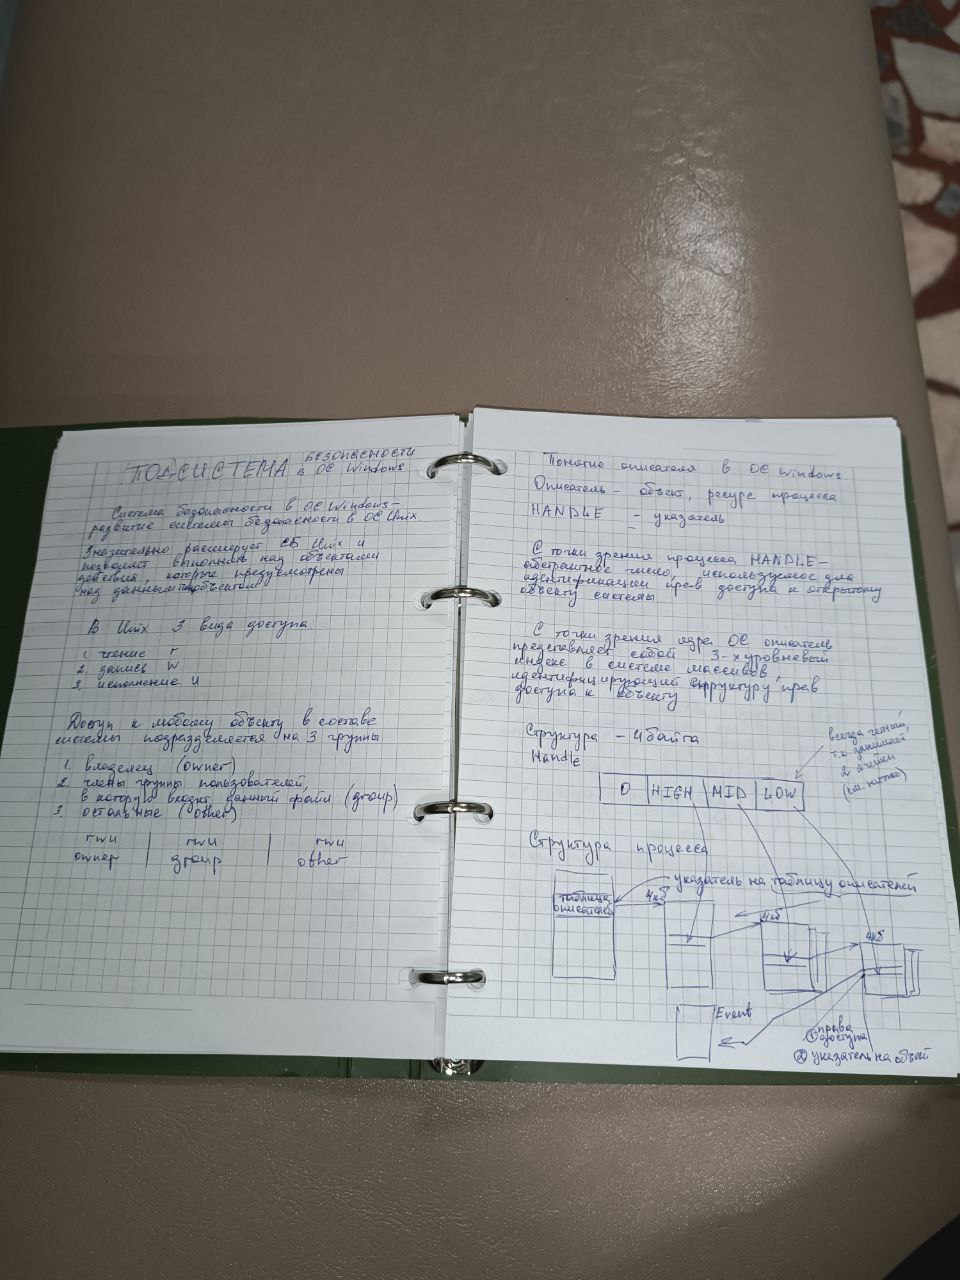 ПОДСИСТЕМА БЕЗОПАСНОСТИ
в ОС Windows
Система безопасности в ОС Windows –
развитие системы безопасности в ОС Unix
Значительно расширяет СБ Unix и
позволяет выполнять над объектами
действия, которые предусмотрены
над данным объектом
В Unix 3 вида доступа
1. чтение r
2. запись w
3. исполнение u
Доступ к любому объекту в составе
системы подразделяется на 3 группы
1. владелец (owner)
2. члены группы пользователей,
в которую входит данный файл (group)
3. остальные (other)
rwu | rwu | rwu
owner | group | other
Понятие описателя в ОС Windows.
Описатель – объект, ресурс процесса
HANDLE – указатель
С точки зрения процесса HANDLE –
абстрактное число, используемое для
идентификации прав доступа к открытому
объекту системы
С точки зрения ядра ОС описатель
представляет собой 3-х уровневый
индекс в системе массивов,
идентифицирующий структуру прав
доступа к объекту
Структура – 4 байта
Handle
всегда четный,
т.к. занимает
2 ячейки
(см. ниже)
0 HIGH MID LOW
Структура процесса
указатель на таблицу описателей
таблица
описателей
4кб
4кб
4кб
Event
① права
доступа
② указатель на объект